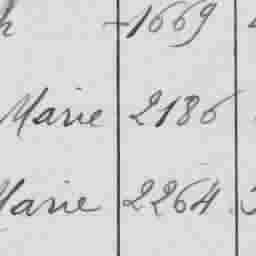 1669
Marie 2186
Marie 2264